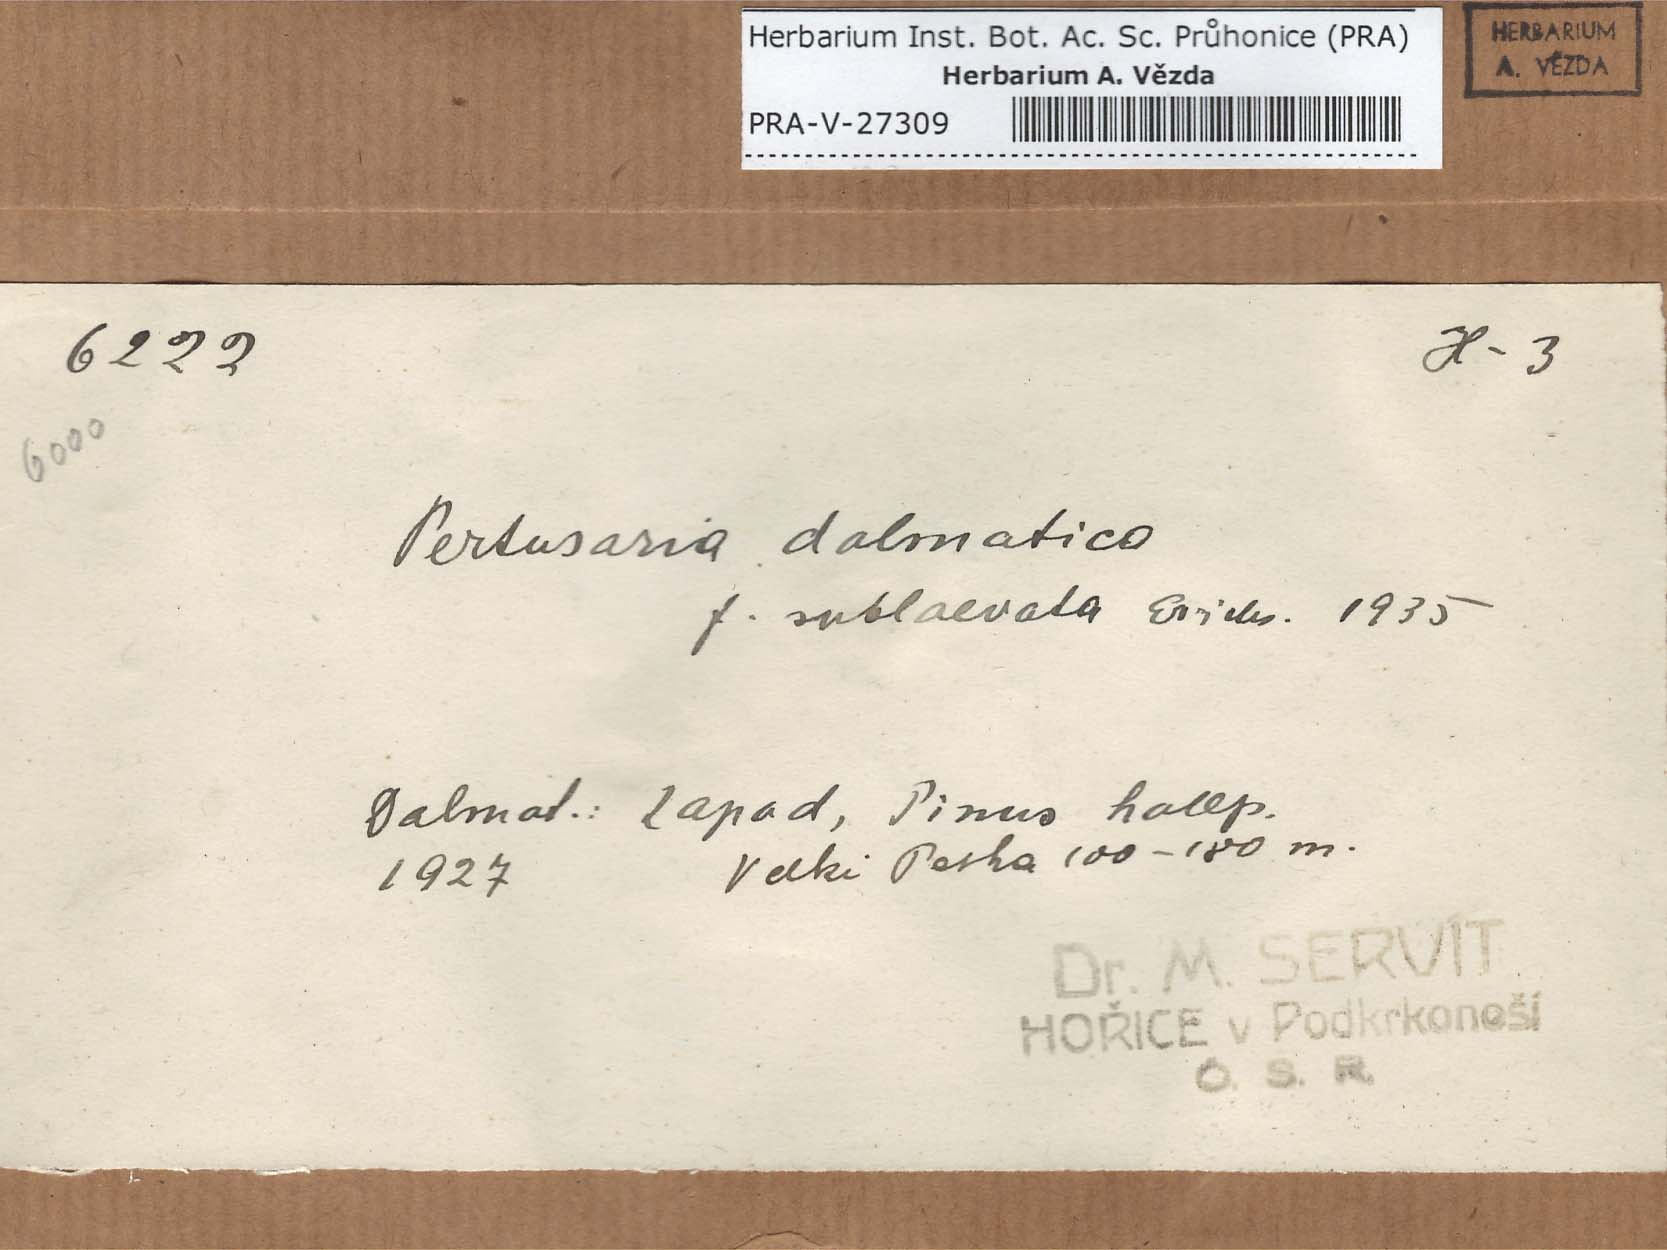 Herbarium Inst. Bot. Ac. Sc. Průhonice (PRA)
Herbarium A. Vězda
PRA-V-27309
HERBARIUM
A. VĚZDA
6222
H-3
6000
Pertusaria dalmatica
f. sublaevata Erichs. 1935
Dalmat.: Lapad, Pinus halep.
1927 Velki Petka 100-180 m.
Dr. M. SERVÍT
HOŘICE v Podkrkonoší
Č. S. R.